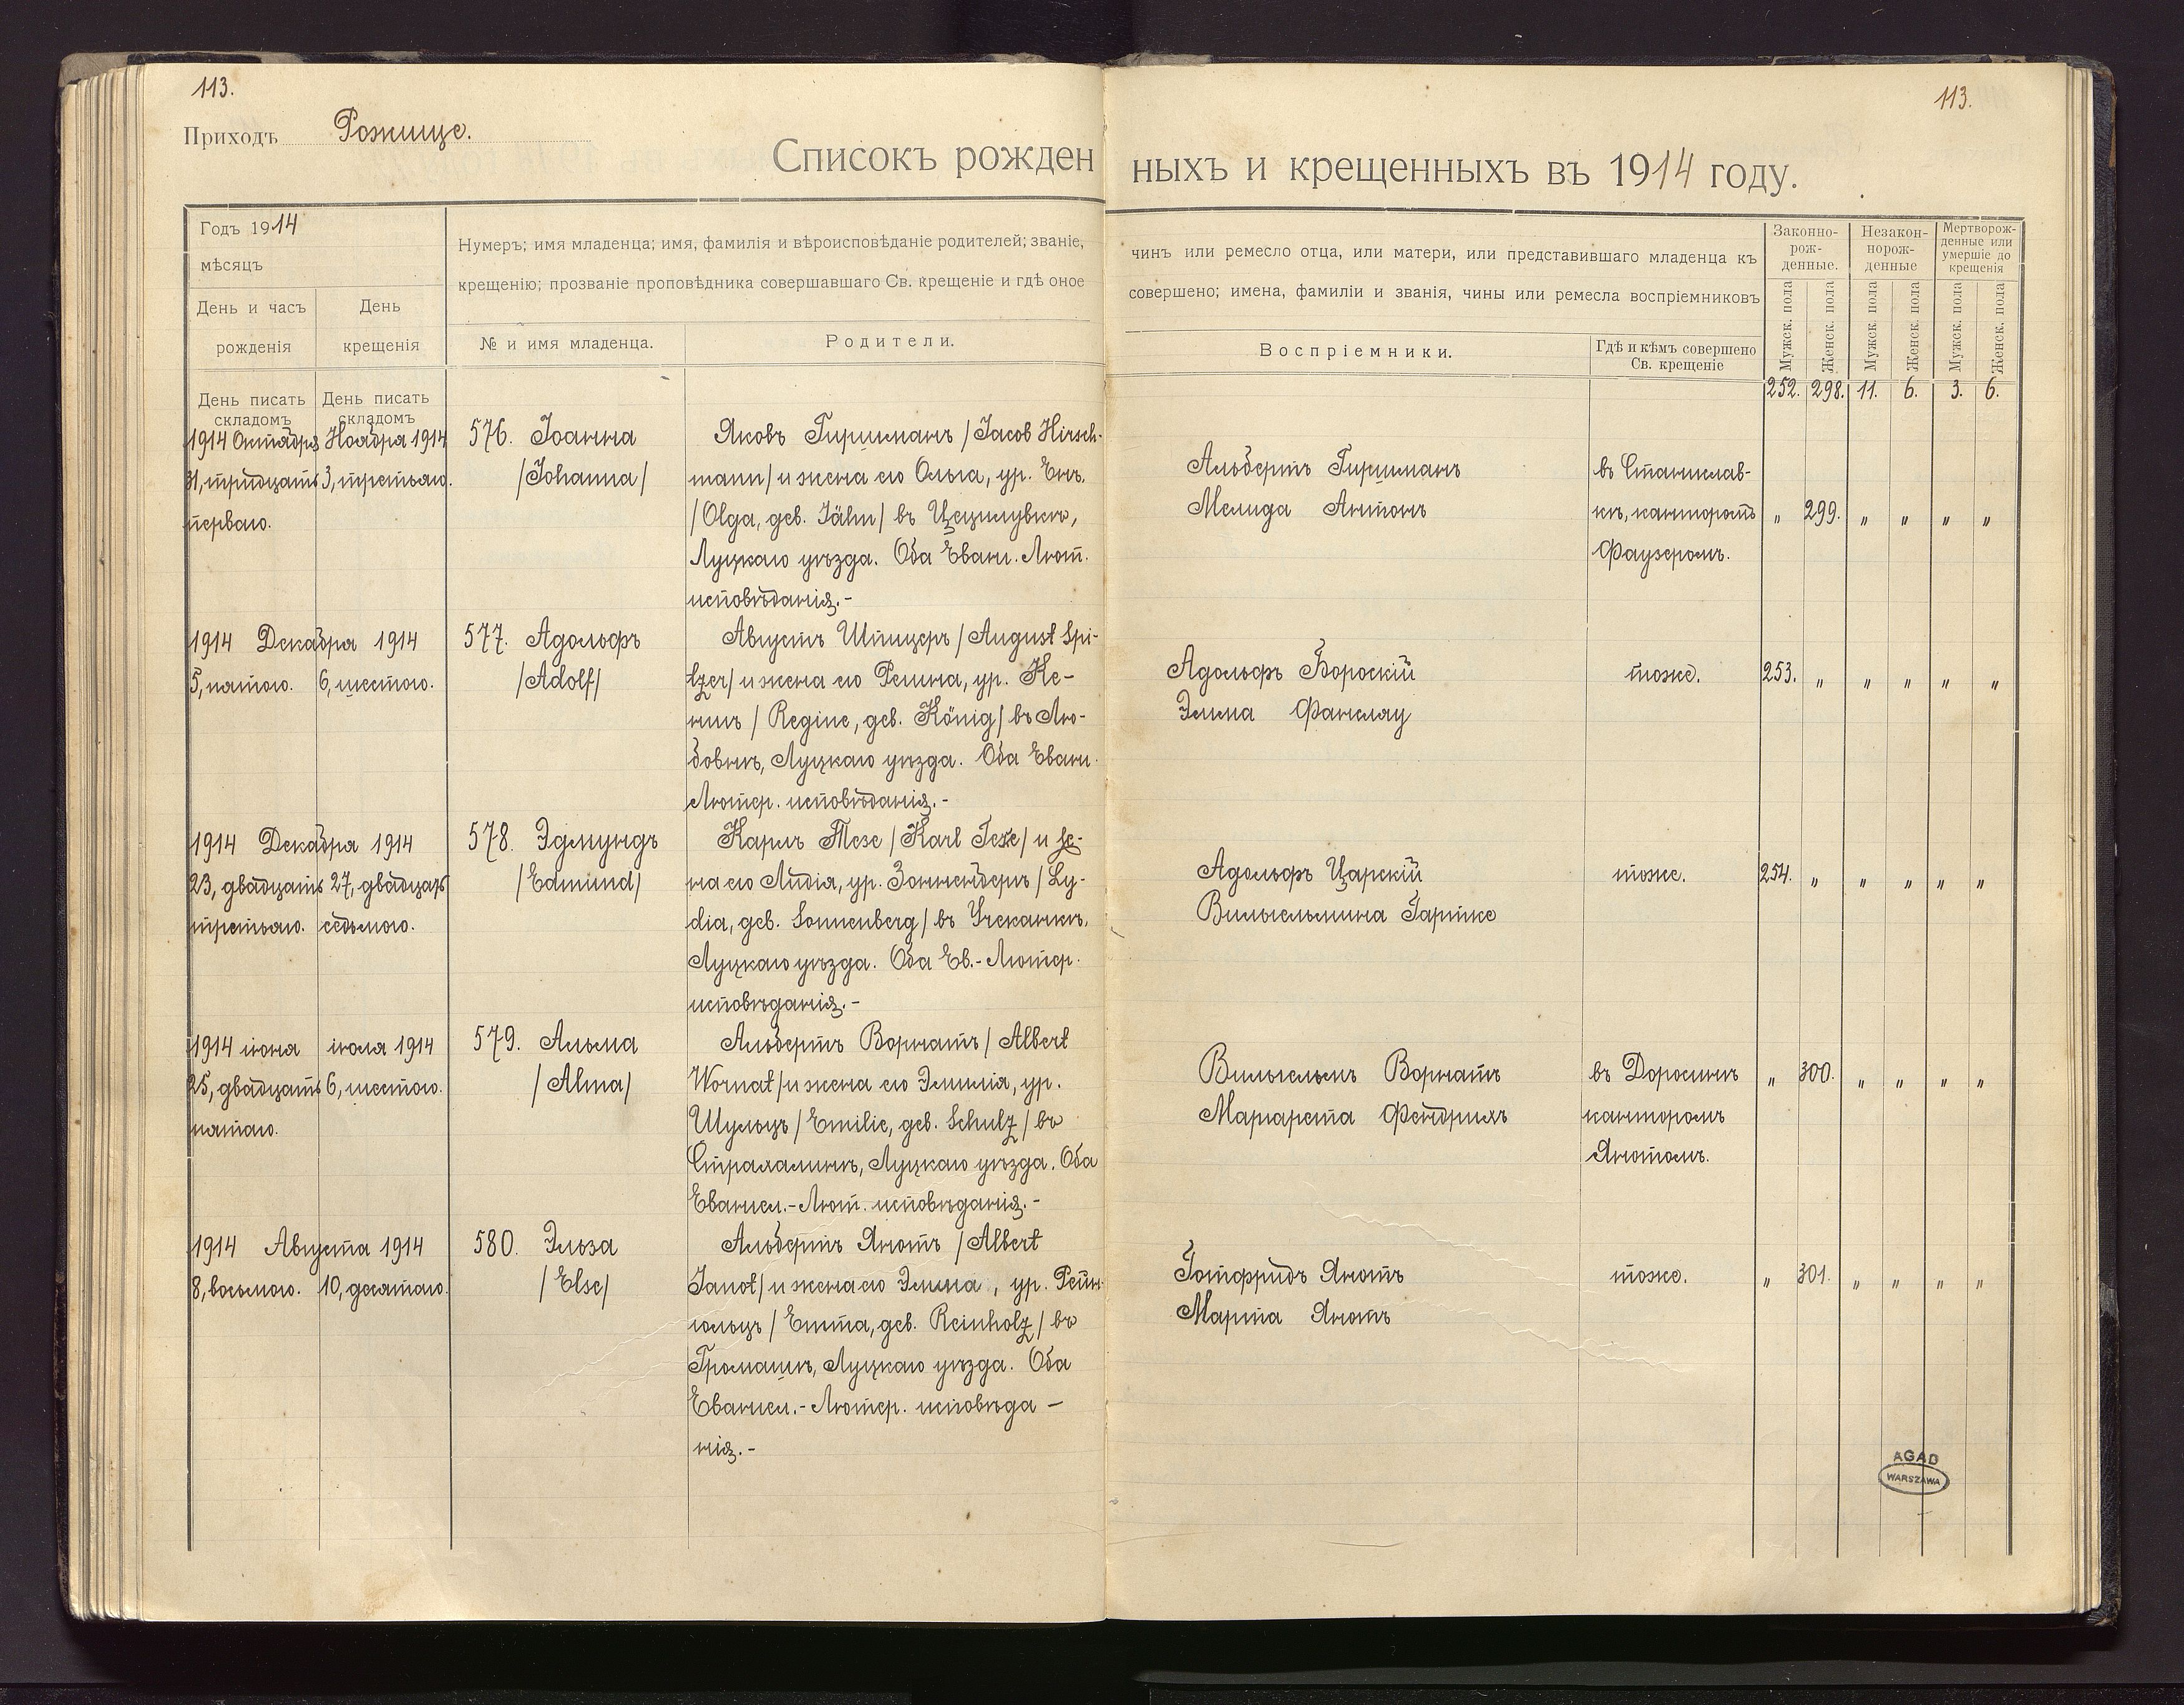 113.
113.
Приходъ Рожище.
Списокъ рожденныхъ и крещенныхъ въ 1914 году.
Годъ 1914
мѣсяцъ
День и часъ
рожденія
День
крещенія
Нумеръ; имя младенца; имя, фамилія и вѣроисповѣданіе родителей; званіе,
крещенію; прозваніе проповѣдника совершавшаго Св. крещеніе и гдѣ оное
№ и имя младенца.
Родители.
чинъ или ремесло отца, или матери, или представившаго младенца къ
совершено; имена, фамиліи и званія, чины или ремесла воспріемниковъ
Воспріемники.
Гдѣ и кѣмъ совершено
Св. крещеніе
Законно-
рож-
денные.
Незакон-
норож-
денные
Мертворож-
денные или
умершіе до
крещенія
Мужск. пола
Женск. пола
Мужск. пола
Женск. пола
Мужск. пола
Женск. пола
День писать
складомъ
День писать
складомъ
252. 298. 11. 6. 3. 6.
1914 Октября
31, тридцать
перваго.
Ноября 1914
3, третьяго.
576. Іоанна
/Johanna/
Яковъ Гиршманъ /Jacob Hirsch-
mann/ и жена его Ольга, ур. Енъ.
/Olga, geb. Jähn/ въ Цецилувкѣ,
Луцкаго уѣзда. Оба Еванг. Лют.
исповѣданія.-
Альбертъ Гиршманъ
Мелида Антонъ
въ Станислав-
кѣ, канторомъ
Фаузеромъ.
„ 299. „ „ „ „
1914 Декабря 1914
5, пятого.
6, шестого.
577. Адольфъ
/Adolf/
Августъ Шпицеръ /August Spi-
tzer/ и жена его Регина, ур. Ке-
нигъ /Regine, geb. König/ въ Лю-
бовкѣ, Луцкаго уѣзда. Оба Еванг.
Лютер. исповѣданія.-
Адольфъ Бороскій
Эмма Фанслау
тоже.
253. „ „ „ „ „
1914 Декабря 1914
23, двадцать
третьяго.
27, двадцать
седьмого.
578. Эдмундъ
/Edmund/
Карлъ Тезе /Karl Teze/ и же-
на его Лидія, ур. Зонненбергъ /Ly-
dia, geb. Sonnenberg/ въ Учеканкѣ,
Луцкаго уѣзда. Оба Ев.-Лютер.
исповѣданія.-
Адольфъ Царскій
Вильгельмина Гартке
тоже.
254. „ „ „ „ „
1914 іюня
25, двадцать
пятаго.
іюля 1914
6, шестого.
579. Альма
/Alma/
Альбертъ Ворнатъ /Albert
Wornat/ и жена его Эмилія, ур.
Шульцъ /Emilie, geb. Schulz/ въ
Страхалинѣ, Луцкаго уѣзда. Оба
Евангел.-Лют. исповѣданія.-
Вильгельмъ Ворнатъ
Маргарета Фендрихъ
въ Доросинѣ
канторомъ
Янотомъ.
„ 300. „ „ „ „
1914 Августа 1914
8, восьмого.
10, десятаго.
580. Эльза
/Else/
Альбертъ Янотъ /Albert
Janot/ и жена его Эмма, ур. Рейн-
гольцъ /Emma, geb. Reinholz/ въ
Громашѣ, Луцкаго уѣзда. Оба
Евангел.-Лютер. исповѣда-
нія.-
Готфридъ Янотъ
Марта Янотъ
тоже.
„ 301. „ „ „ „
AGAD
WARSZAWA